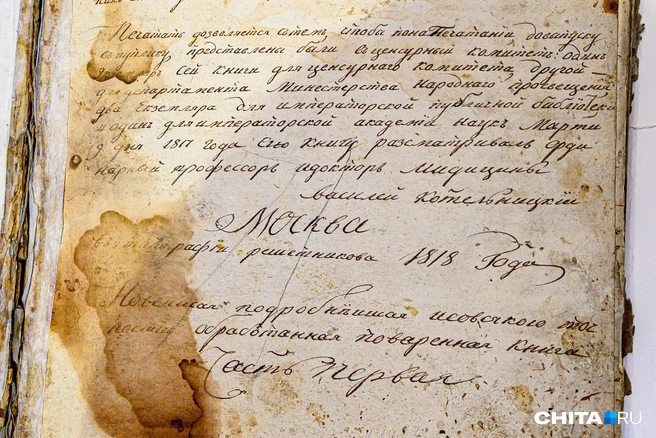 Печатать дозволяется стем, чтоба понапечатании довыпуску
впублику представлена были вценсурный комитетъ: одинъ
сей книги для ценсурнаго комитета другой
департамента Министерства Народнаго просвещения
два екземпляра для императорской публичной библиотеки
и одинъ для императорской академіи наукъ Марти
9 дня 1817 года Сью книгу разсматривалъ орди
нарный профессоръ идокторъ Мидицины
василей котельницкій
Москва
втипографіи решетникова 1818 Года
Новейшая подробнейшая исовсякого
обработанная поваренная книга
Часть Первая
CHITA.RU